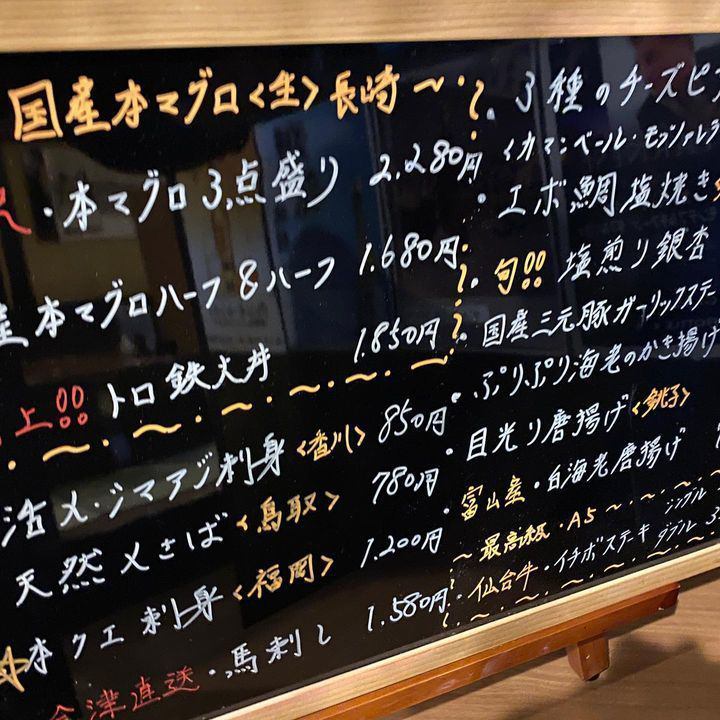 国産本マグロ<生>長崎〜
・本マグロ3点盛り 2,280円
本マグロハーフ&ハーフ 1.680円
上!! トロ鉄火丼 1.850円
活〆・シマアジ刺身<香川> 850円
天然〆さば<鳥取> 780円
本クエ刺身<福岡> 1.200円
会津直送・馬刺し 1.580円
・3種のチーズピ
<カマンベール・モッツァレラ
・エボ鯛塩焼き
・旬!! 塩煎り銀杏
・国産三元豚ガーリックステー
・ぷりぷり海老のかき揚げ
・目光り唐揚げ<銚子>
・富山産・白海老唐揚げ
〜最高級・A5〜 シングル
・仙台牛・イチボステーキ ダブル 3